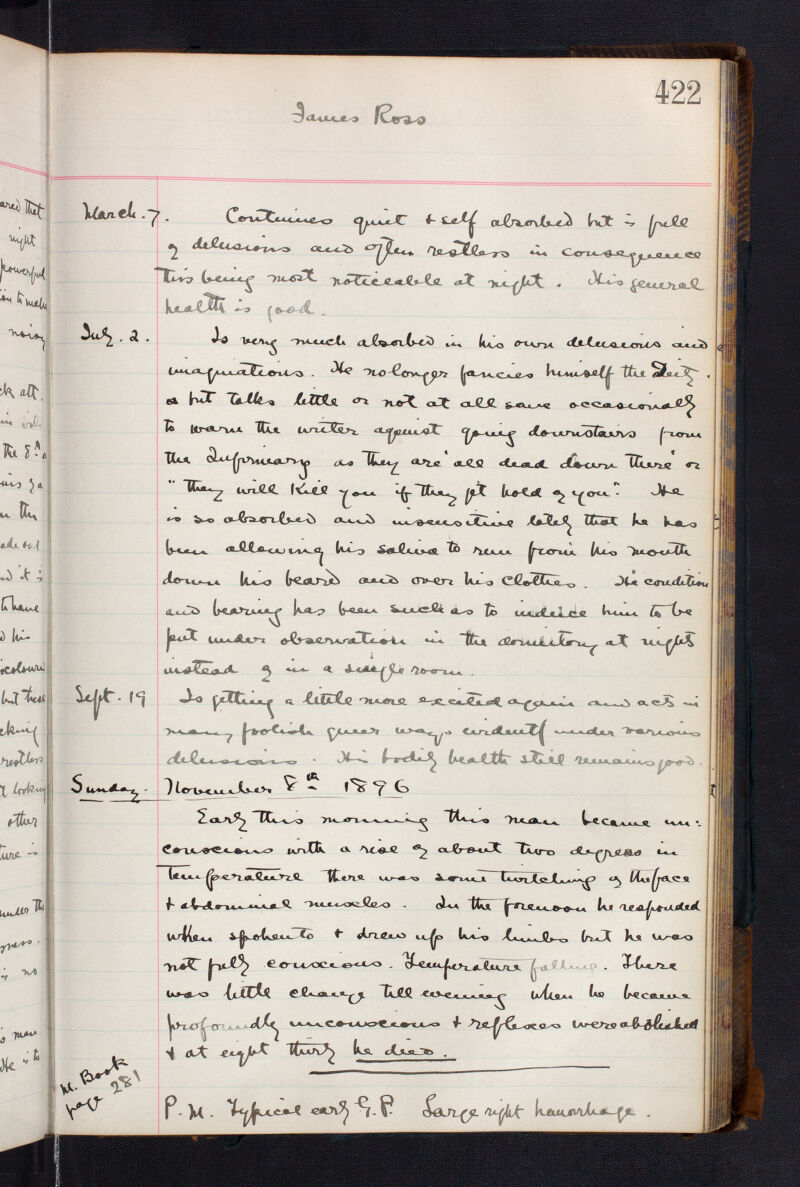 422
James Ross
March. 7. Continues quiet & self absorbed but is full
of delusions and often restless in consequence
this being most noticeable at night. His general
health is good.
July. 2. Is very much absorbed in his own delusions and
imaginations. He no longer fancies himself the Deity.
but talks little or not at all save occasionally
to warn the writer against going downstairs from
the Infirmary as they are "all dead down there" or
"they will kill you if they get hold of you". He
is so absorbed and insensitive lately that he has
been allowing his saliva to run from his mouth
down his beard and over his clothes. His condition
and bearing has been such as to induce him to be
put under observation in the dormitory at night
instead of in a single room.
Sept. 19 Is getting a little more excited again and acts in
many foolish queer ways evidently under various
delusions. His bodily health still remains good.
Sunday. November 8th 1896
Early this morning this man became un:
conscious with a rise of about two degrees in
temperature there was some twitching of the face
& abdominal muscles. In the forenoon he responded
when spoken to & drew up his limbs but he was
not fully conscious. Temperature falling. There
was little change till evening when he became
profoundly unconscious & reflexes were abolished
& at eight thirty he died.
M. Book
page 281
P.M. Typical early G.P. Large right hemorrhage.
ared that
night
powerful
noisy
restless
other
under the
is no
He is to